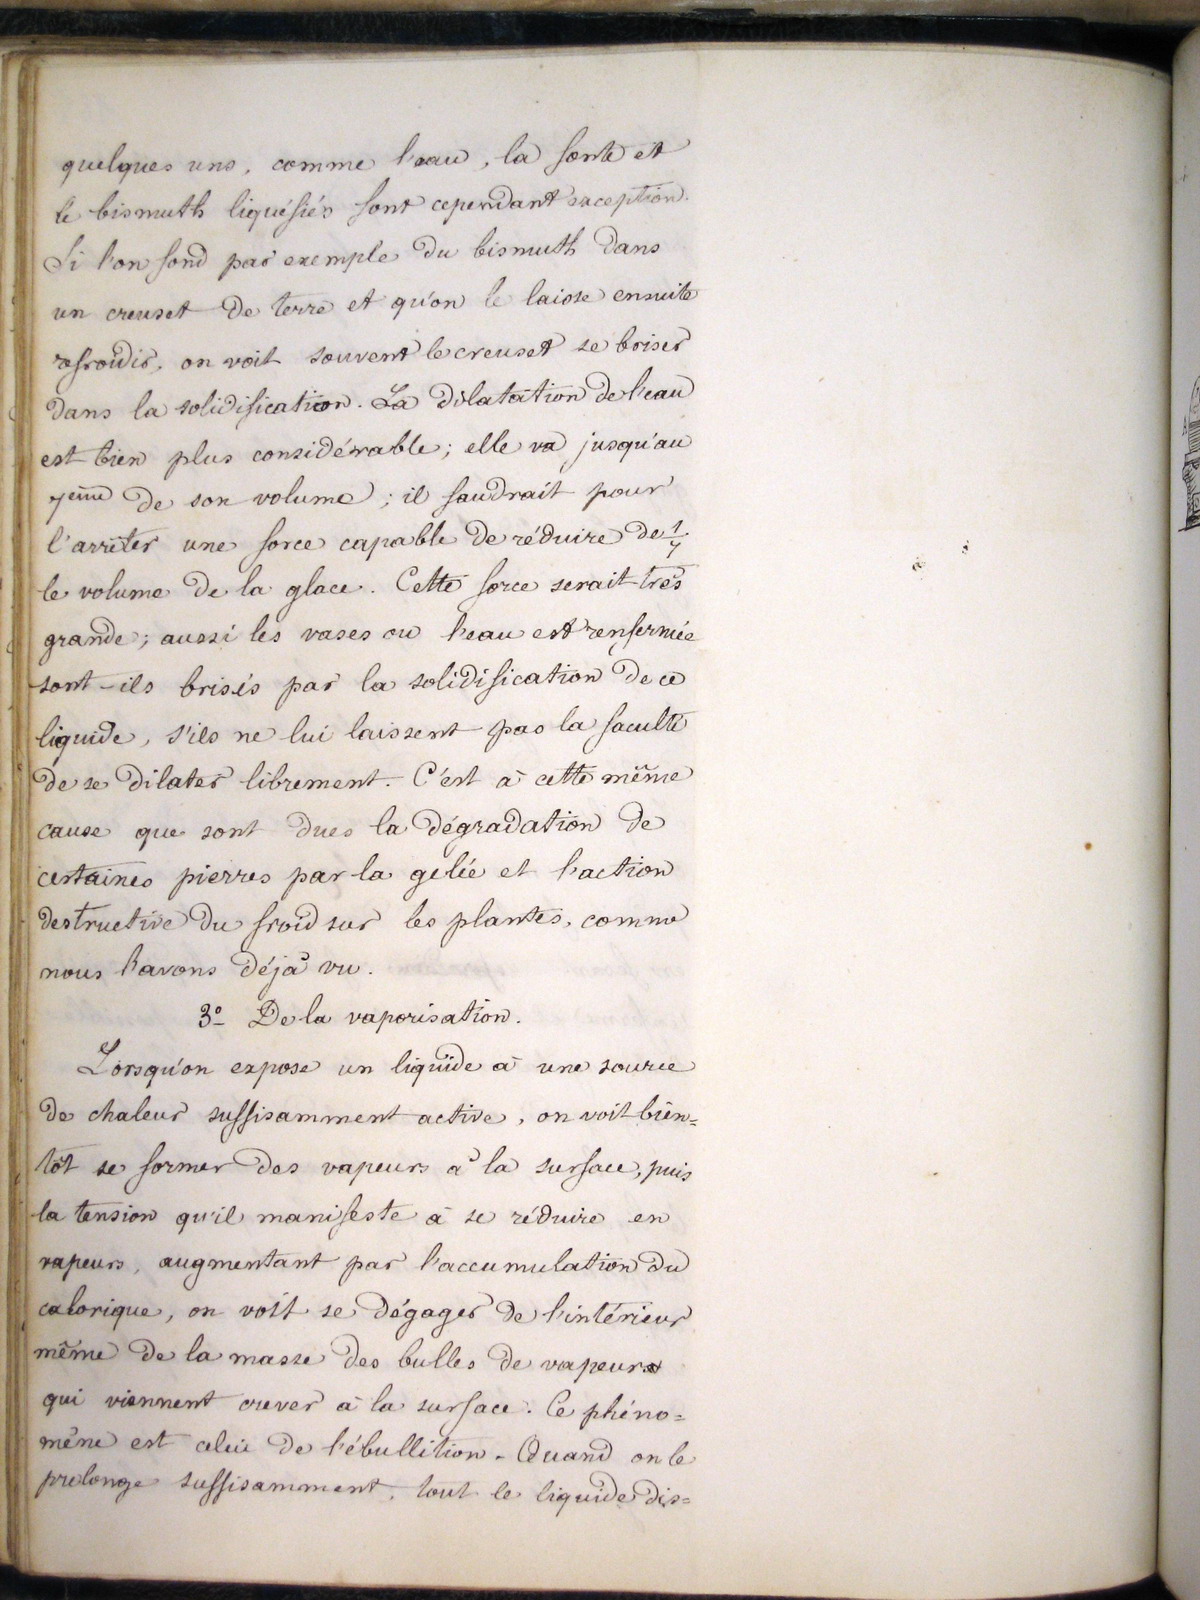 quelques uns, comme l'eau, la fonte et
le bismuth liquéfiés font cependant exception.
Si l'on fond par exemple du bismuth dans
un creuset de terre et qu'on le laisse ensuite
refroidir, on voit souvent le creuset se briser
dans la solidification. La dilatation de l'eau
est bien plus considérable; elle va jusqu'au
7ème de son volume; il faudrait pour
l'arrêter une force capable de réduire de 1/7
le volume de la glace. Cette force serait très
grande; aussi les vases ou l'eau est renfermée
sont-ils brisés par la solidification de ce
liquide, s'ils ne lui laissent pas la faculté
de se dilater librement. C'est à cette même
cause que sont dues la dégradation de
certaines pierres par la gelée et l'action
destructive du froid sur les plantes, comme
nous l'avons déjà vu.
3º De la vaporisation.
Lorsqu'on expose un liquide à une source
de chaleur suffisamment active, on voit bien=
tôt se former des vapeurs à la surface, puis
la tension qu'il manifeste à se réduire en
vapeurs, augmentant par l'accumulation du
calorique, on voit se dégager de l'intérieur
même de la masse des bulles de vapeurs
qui viennent crever à la surface. Ce phéno=
mène est celui de l'ébullition. Quand on le
prolonge suffisamment, tout le liquide dis=